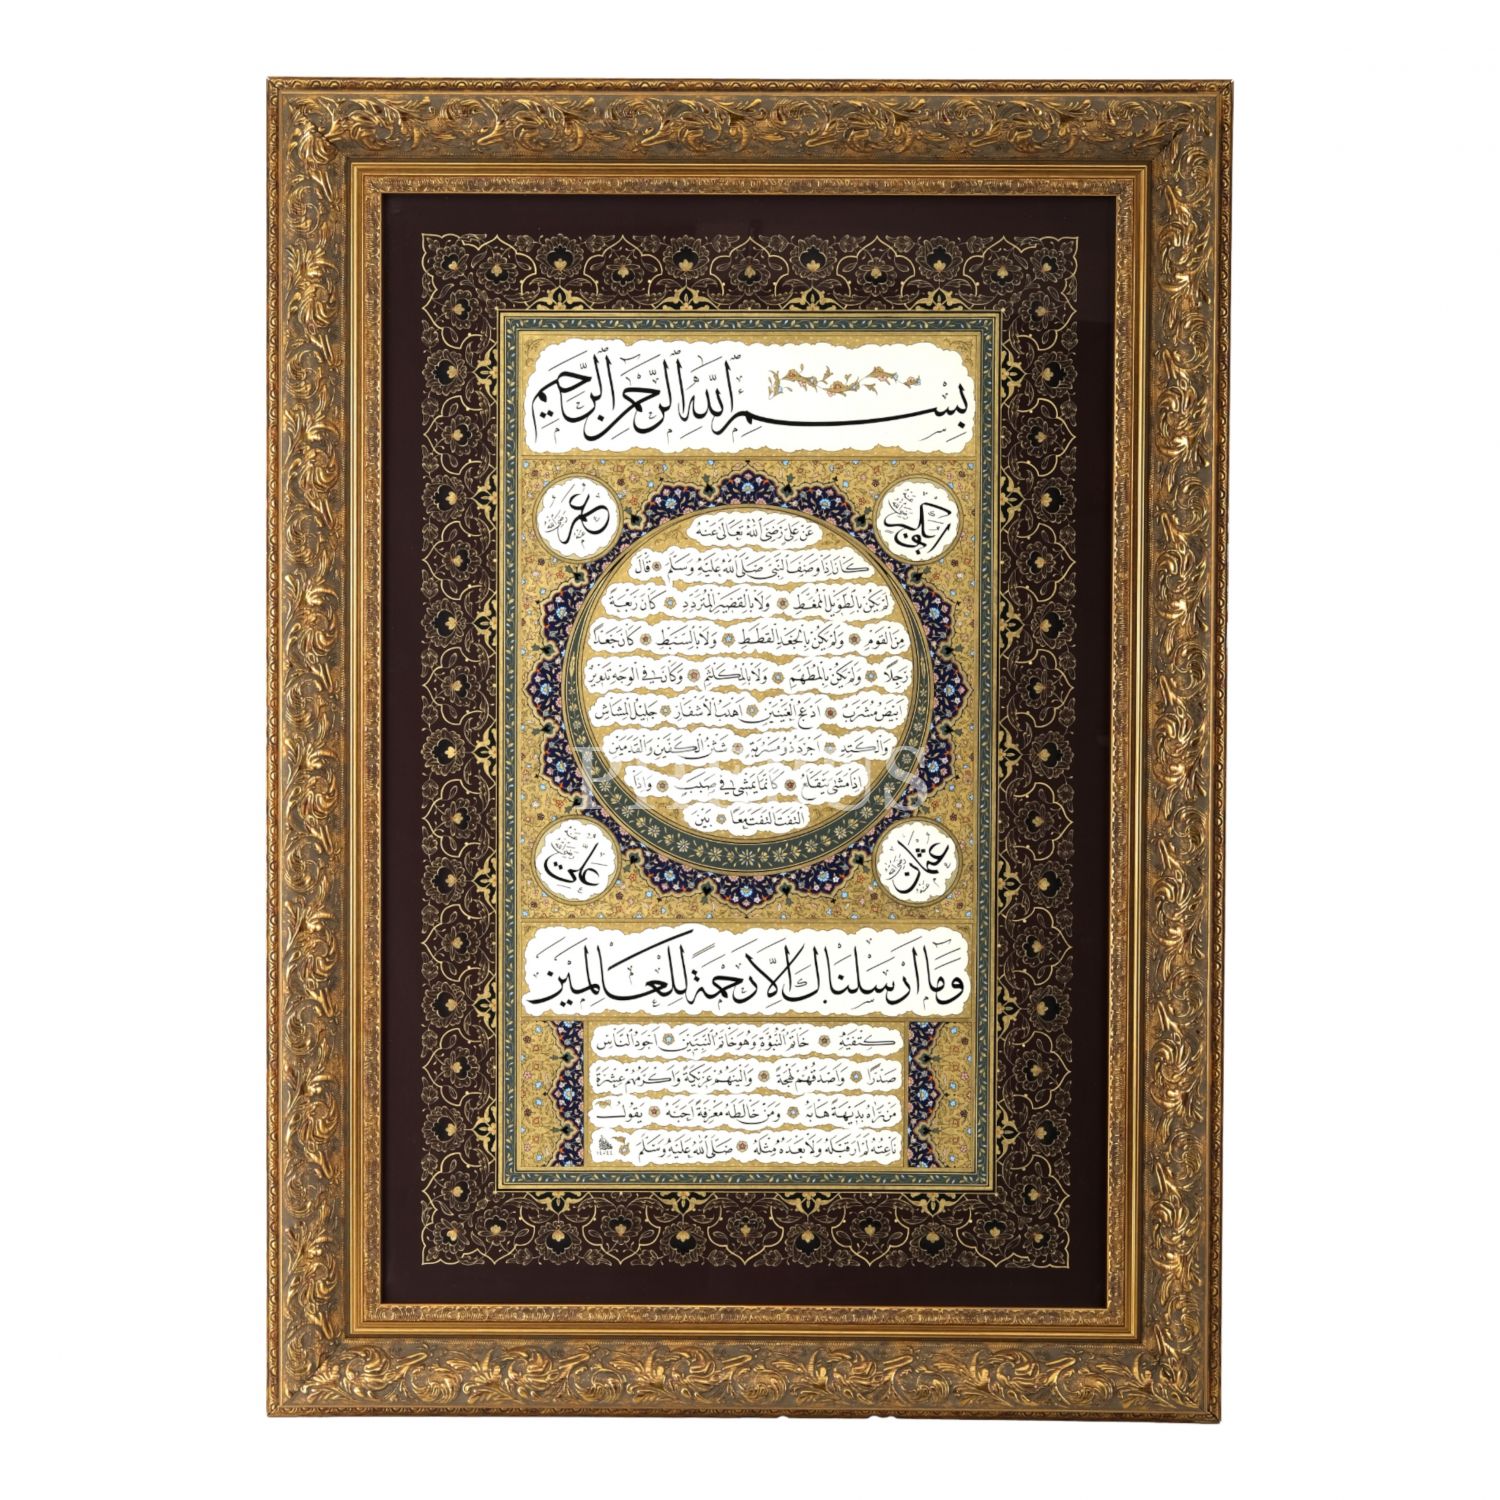 بسم الله الرحمن الرحيم
ابو بكر رضي الله عنه
عمر رضي الله عنه
عن علي رضي الله تعالى عنه
كان اذا وصف النبي صلى الله عليه وسلم قال
لم يكن بالطويل الممغط ولا بالقصير المتردد كان ربعة
من القوم ولم يكن بالجعد القطط ولا بالسبط كان جعدا
رجلا ولم يكن بالمطهم ولا بالمكلثم وكان في الوجه تدوير
ابيض مشرب ادعج العينين اهدب الاشفار جليل المشاش
والكتد اجرد ذو مسربة شثن الكفين والقدمين
اذا مشى تقلع كانما يمشي في صبب واذا
التفت التفت معا بين
عثمان رضي الله عنه
علي رضي الله عنه
وما ارسلناك الا رحمة للعالمين
كتفيه خاتم النبوة وهو خاتم النبيين اجود الناس
صدرا واصدقهم لهجة والينهم عريكة واكرمهم عشرة
من رآه بديهة هابه ومن خالطه معرفة احبه يقول
ناعته لم ار قبله ولا بعده مثله صلى الله عليه وسلم
PHEBUS